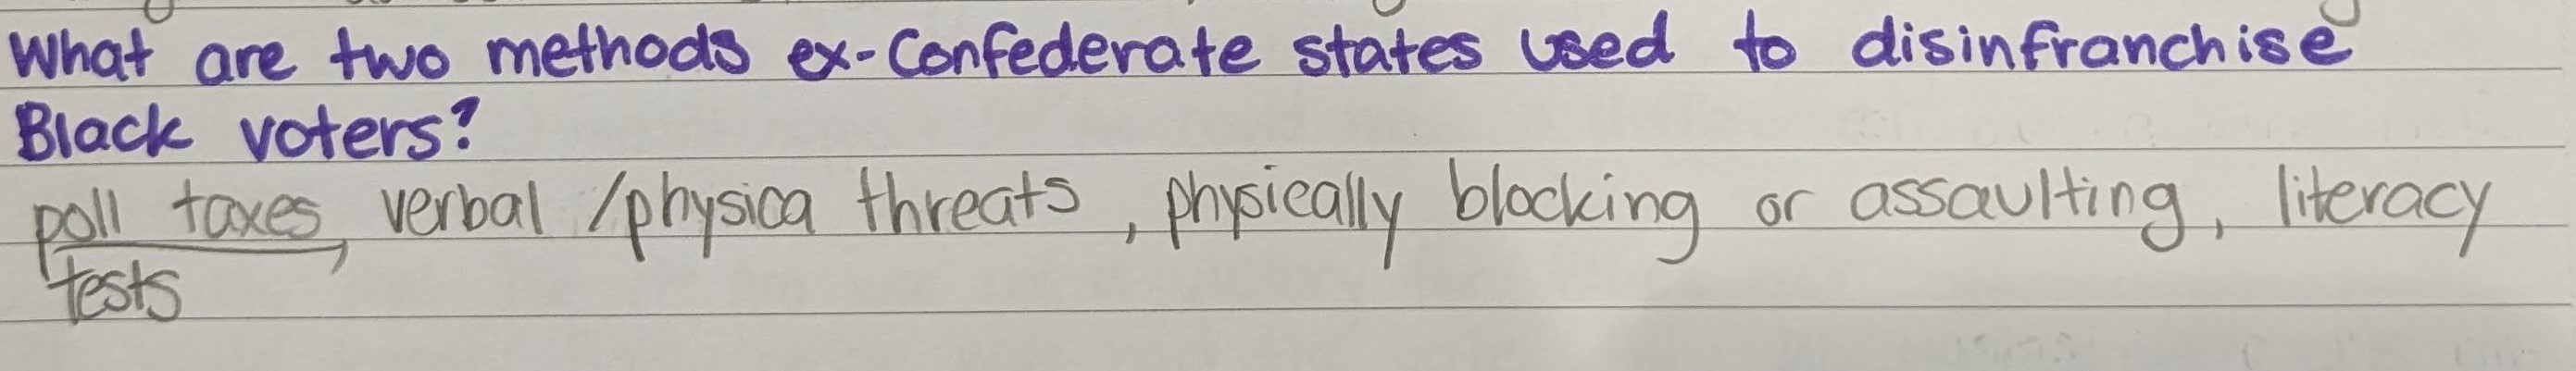 What are two methods ex-Confederate states used to disinfranchise
Black voters?
poll taxes, verbal /physica threats, physically blocking or assaulting, literacy
tests